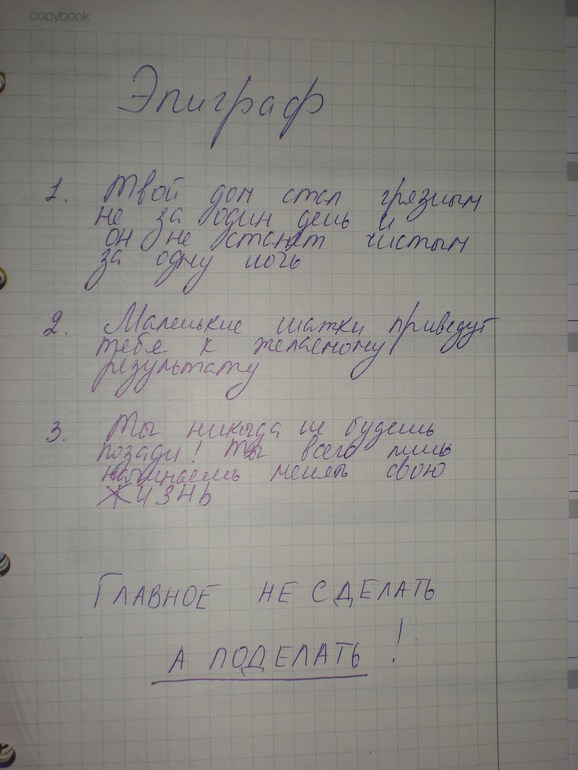 copybook
Эпиграф
1. Твой дом стал грязным
не за один день и
он не станет чистым
за одну ночь
2. Маленькие шажки приведут
тебя к желаемому
результату
3. Ты никогда не будешь
позади! Ты всего лишь
начинаешь менять свою
жизнь
ГЛАВНОЕ НЕ СДЕЛАТЬ
А ПОДЕЛАТЬ!